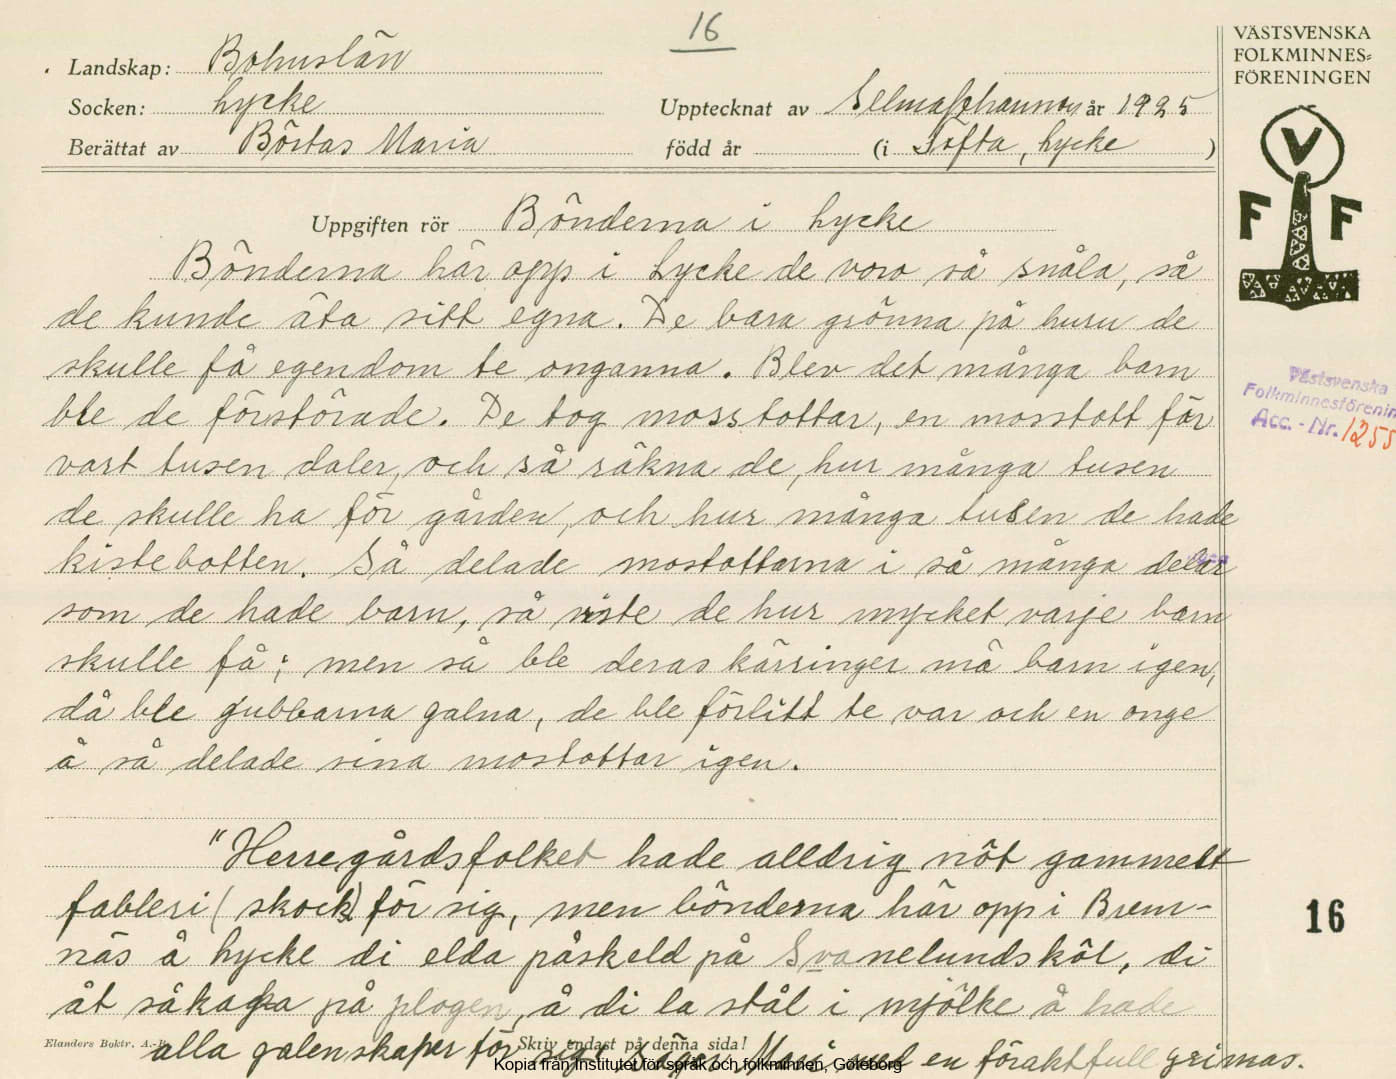 16
VÄSTSVENSKA
FOLKMINNES=
FÖRENINGEN
Landskap: Bohuslän
Socken: Lycke
Upptecknat av Selma Johansson år 1925
Berättat av Börtas Maria
född år (i Tofta, Lycke )
V
F F
Uppgiften rör Bönderna i Lycke
Bönderna här opp i Lycke de voro så snåla, så
de kunde äta sitt egna. De bara grönna på huru de
skulle få egendom te onganna. Blev det många barn
ble de förstörade. De tog mosstottar, en mosstott får
vart tusen daler, och så räkna de, hur många tusen
de skulle ha för gården, och hur många tusen de hade
kistebotten. Så delade mostottarna i så många delar
som de hade barn, så viste de hur mycket varje barn
skulle få; men så ble deras kärringer må barn igen,
då ble gubbarna galna, de ble förlitt te var och en onge
å så delade sina mostottar igen.
Västsvenska
Folkminnesförenin
Acc. - Nr. 1255
"Herregårdsfolket hade alldrig nöt gammelt
fableri (skock) för sig, men bönderna här opp i Brem-
näs å Lycke di elda påskeld på Svanelundsköl, di
åt såkaka på plogen, å di la stål i mjölke å hade
alla galenskaper för sig" säger Mari med en föraktfull grimas.
16
Elanders Boktr. A.-B.
Skriv endast på denna sida!
Kopia från Institutet för språk och folkminnen, Göteborg